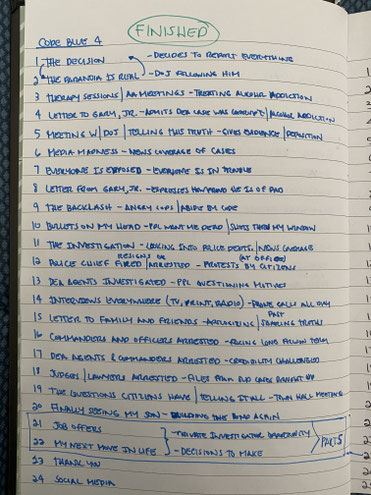 FINISHED
CODE BLUE 4
1 THE DECISION - DECIDES TO REPORT EVERYTHING
2 THE PARANOIA IS REAL - DOJ FOLLOWING HIM
3 THERAPY SESSIONS | AA MEETINGS - TREATING ALCOHOL ADDICTION
4 LETTER TO GARY, JR. - ADMITS DEA CASE WAS CORRUPT | ALCOHOL ADDICTION
5 MEETING W/ DOJ | TELLING THIS TRUTH - GIVES EVIDENCE | DEPOSITION
6 MEDIA MADNESS - NEWS COVERAGE OF CASES
7 EVERYONE IS EXPOSED - EVERYONE IS IN TROUBLE
8 LETTER FROM GARY, JR. - EXPRESSES HOW PROUD HE IS OF DAD
9 THE BACKLASH - ANGRY COPS | ABIDE BY CODE
10 BULLETS ON MY HEAD - PPL WANT ME DEAD | SHOTS THRU MY WINDOW
11 THE INVESTIGATION - LOOKING INTO POLICE DEPTS. | NEWS COVERAGE
12 POLICE CHIEF FIRED RESIGNS OR | ARRESTED - PROTESTS BY CITIZENS (AT OFFICE)
13 DEA AGENTS INVESTIGATED - PPL QUESTIONING MOTIVES
14 INTERVIEWS EVERYWHERE (TV, PRINT, RADIO) - PHONE CALLS ALL DAY
15 LETTER TO FAMILY AND FRIENDS - APOLOGIZING | SHARING PAST TRUTHS
16 COMMANDERS AND OFFICERS ARRESTED - FACING LONG PRISON TERM
17 DEA AGENTS & COMMANDERS ARRESTED - CREDIBILITY CHALLENGED
18 JUDGES | LAWYERS ARRESTED - FILES FROM OLD CASES BROUGHT UP
19 THE QUESTIONS CITIZENS HAVE | TELLING IT ALL - TOWN HALL MEETING
20 FINALLY SEEING MY SON - BUILDING THE BOND AGAIN
21 JOB OFFERS - PRIVATE INVESTIGATOR OPPORTUNITY
22 MY NEXT MOVE IN LIFE - DECISIONS TO MAKE
PART 5
23 THANK YOU
24 SOCIAL MEDIA